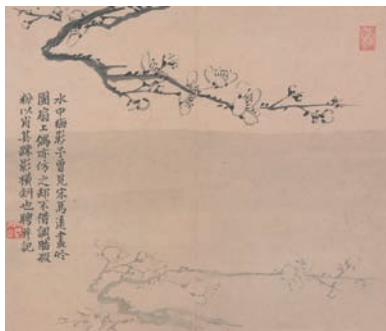 水中梅影予曾見宋馬遠畫於
團扇上偶亦仿之却不借調脂殺
粉以肖其踈影橫斜也聘并記